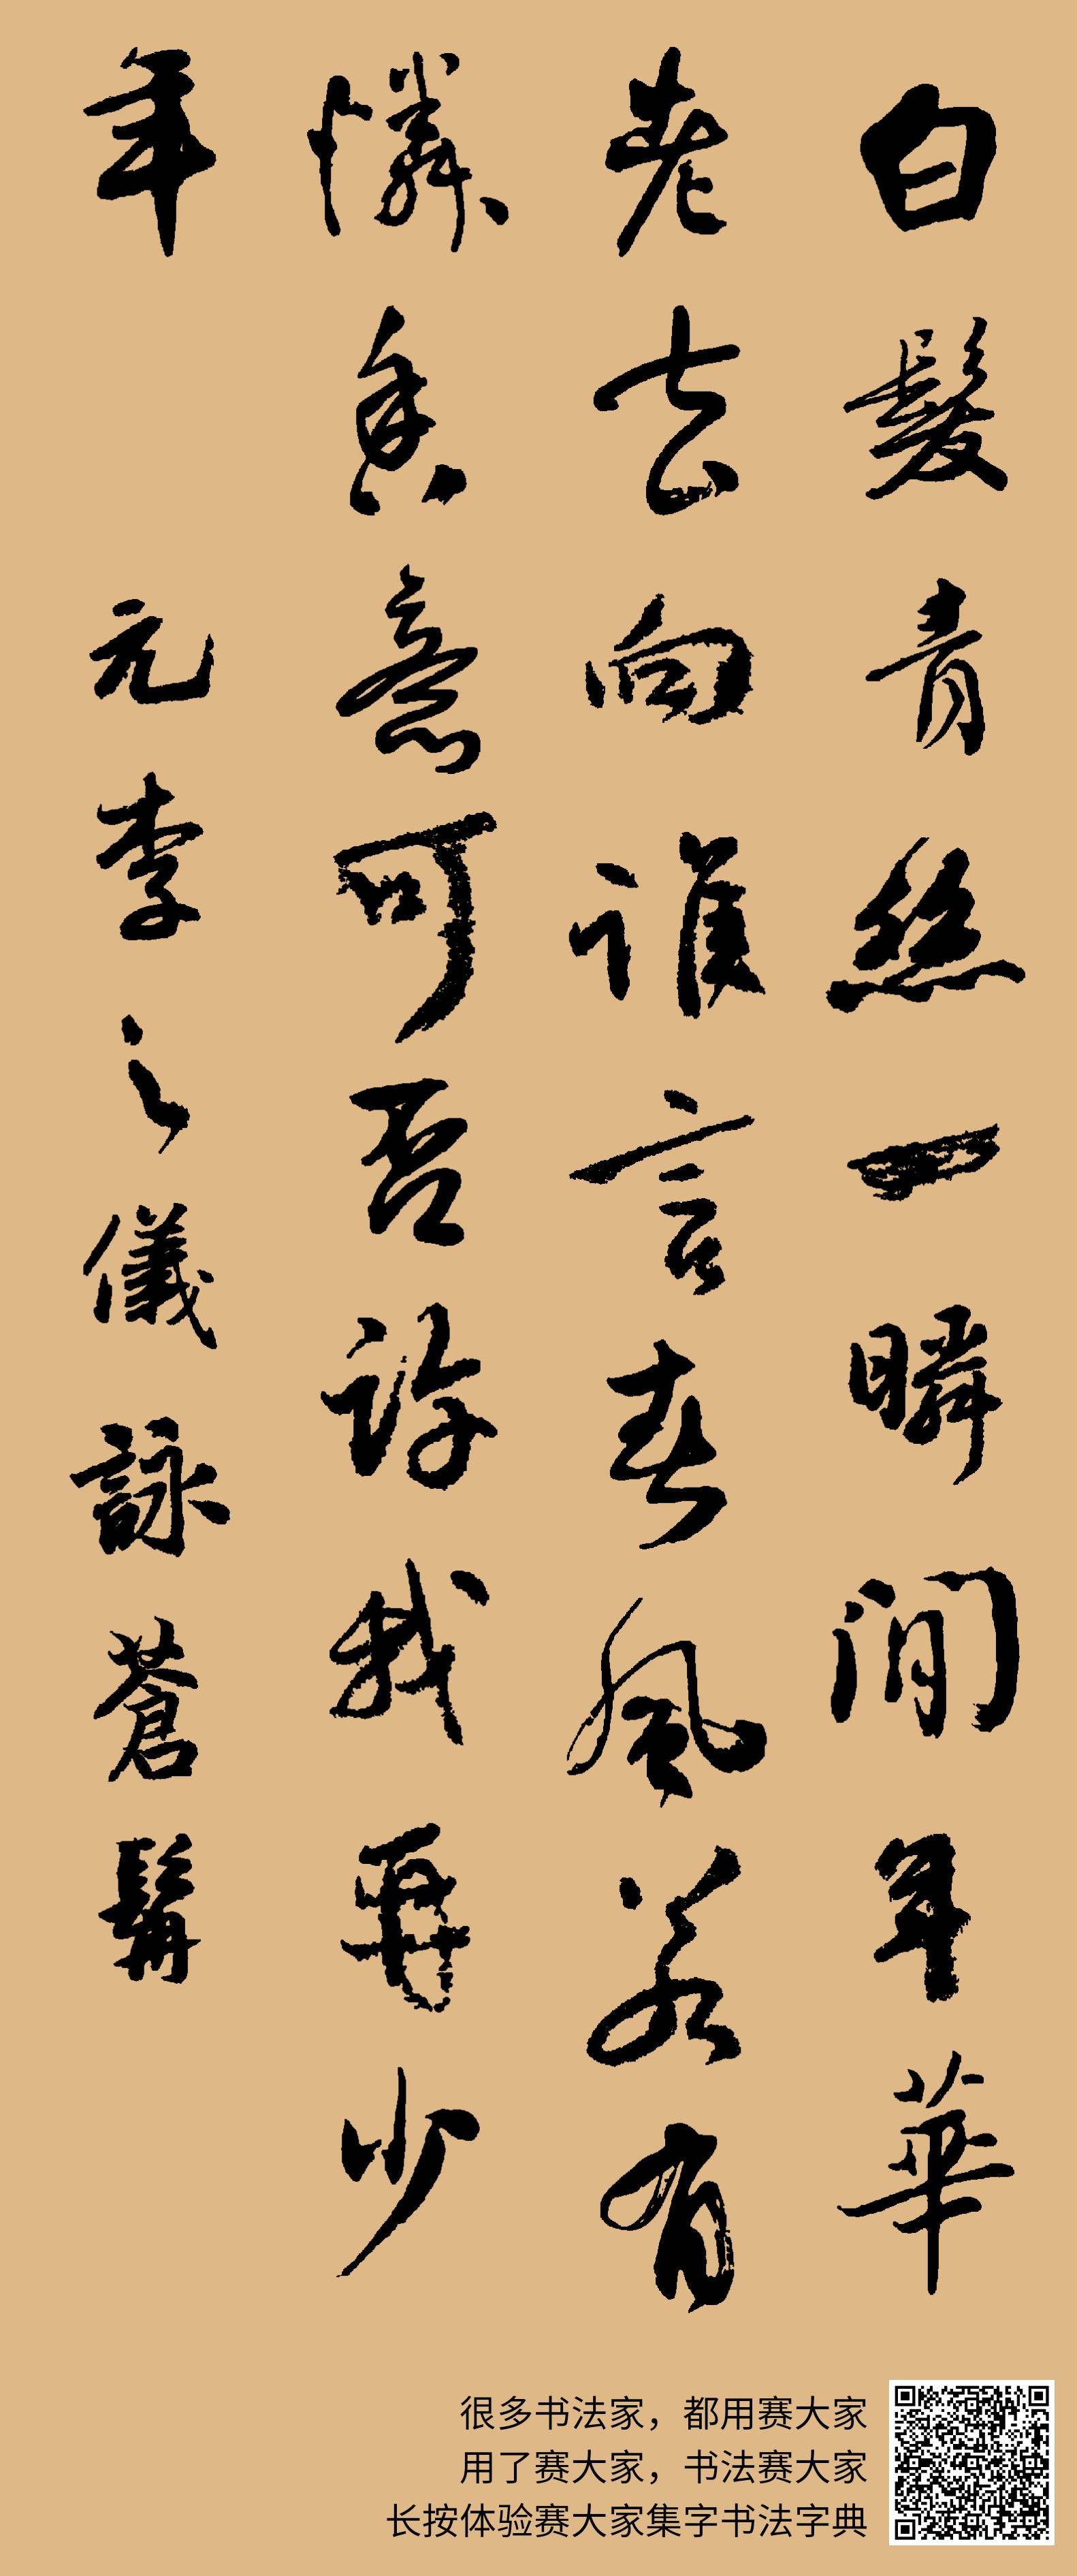 白髮青絲一瞬間年華
老去向誰言春風若有
憐香意可否許我再少
年 元李之儀詠蒼髯
很多书法家，都用赛大家
用了赛大家，书法赛大家
长按体验赛大家集字书法字典